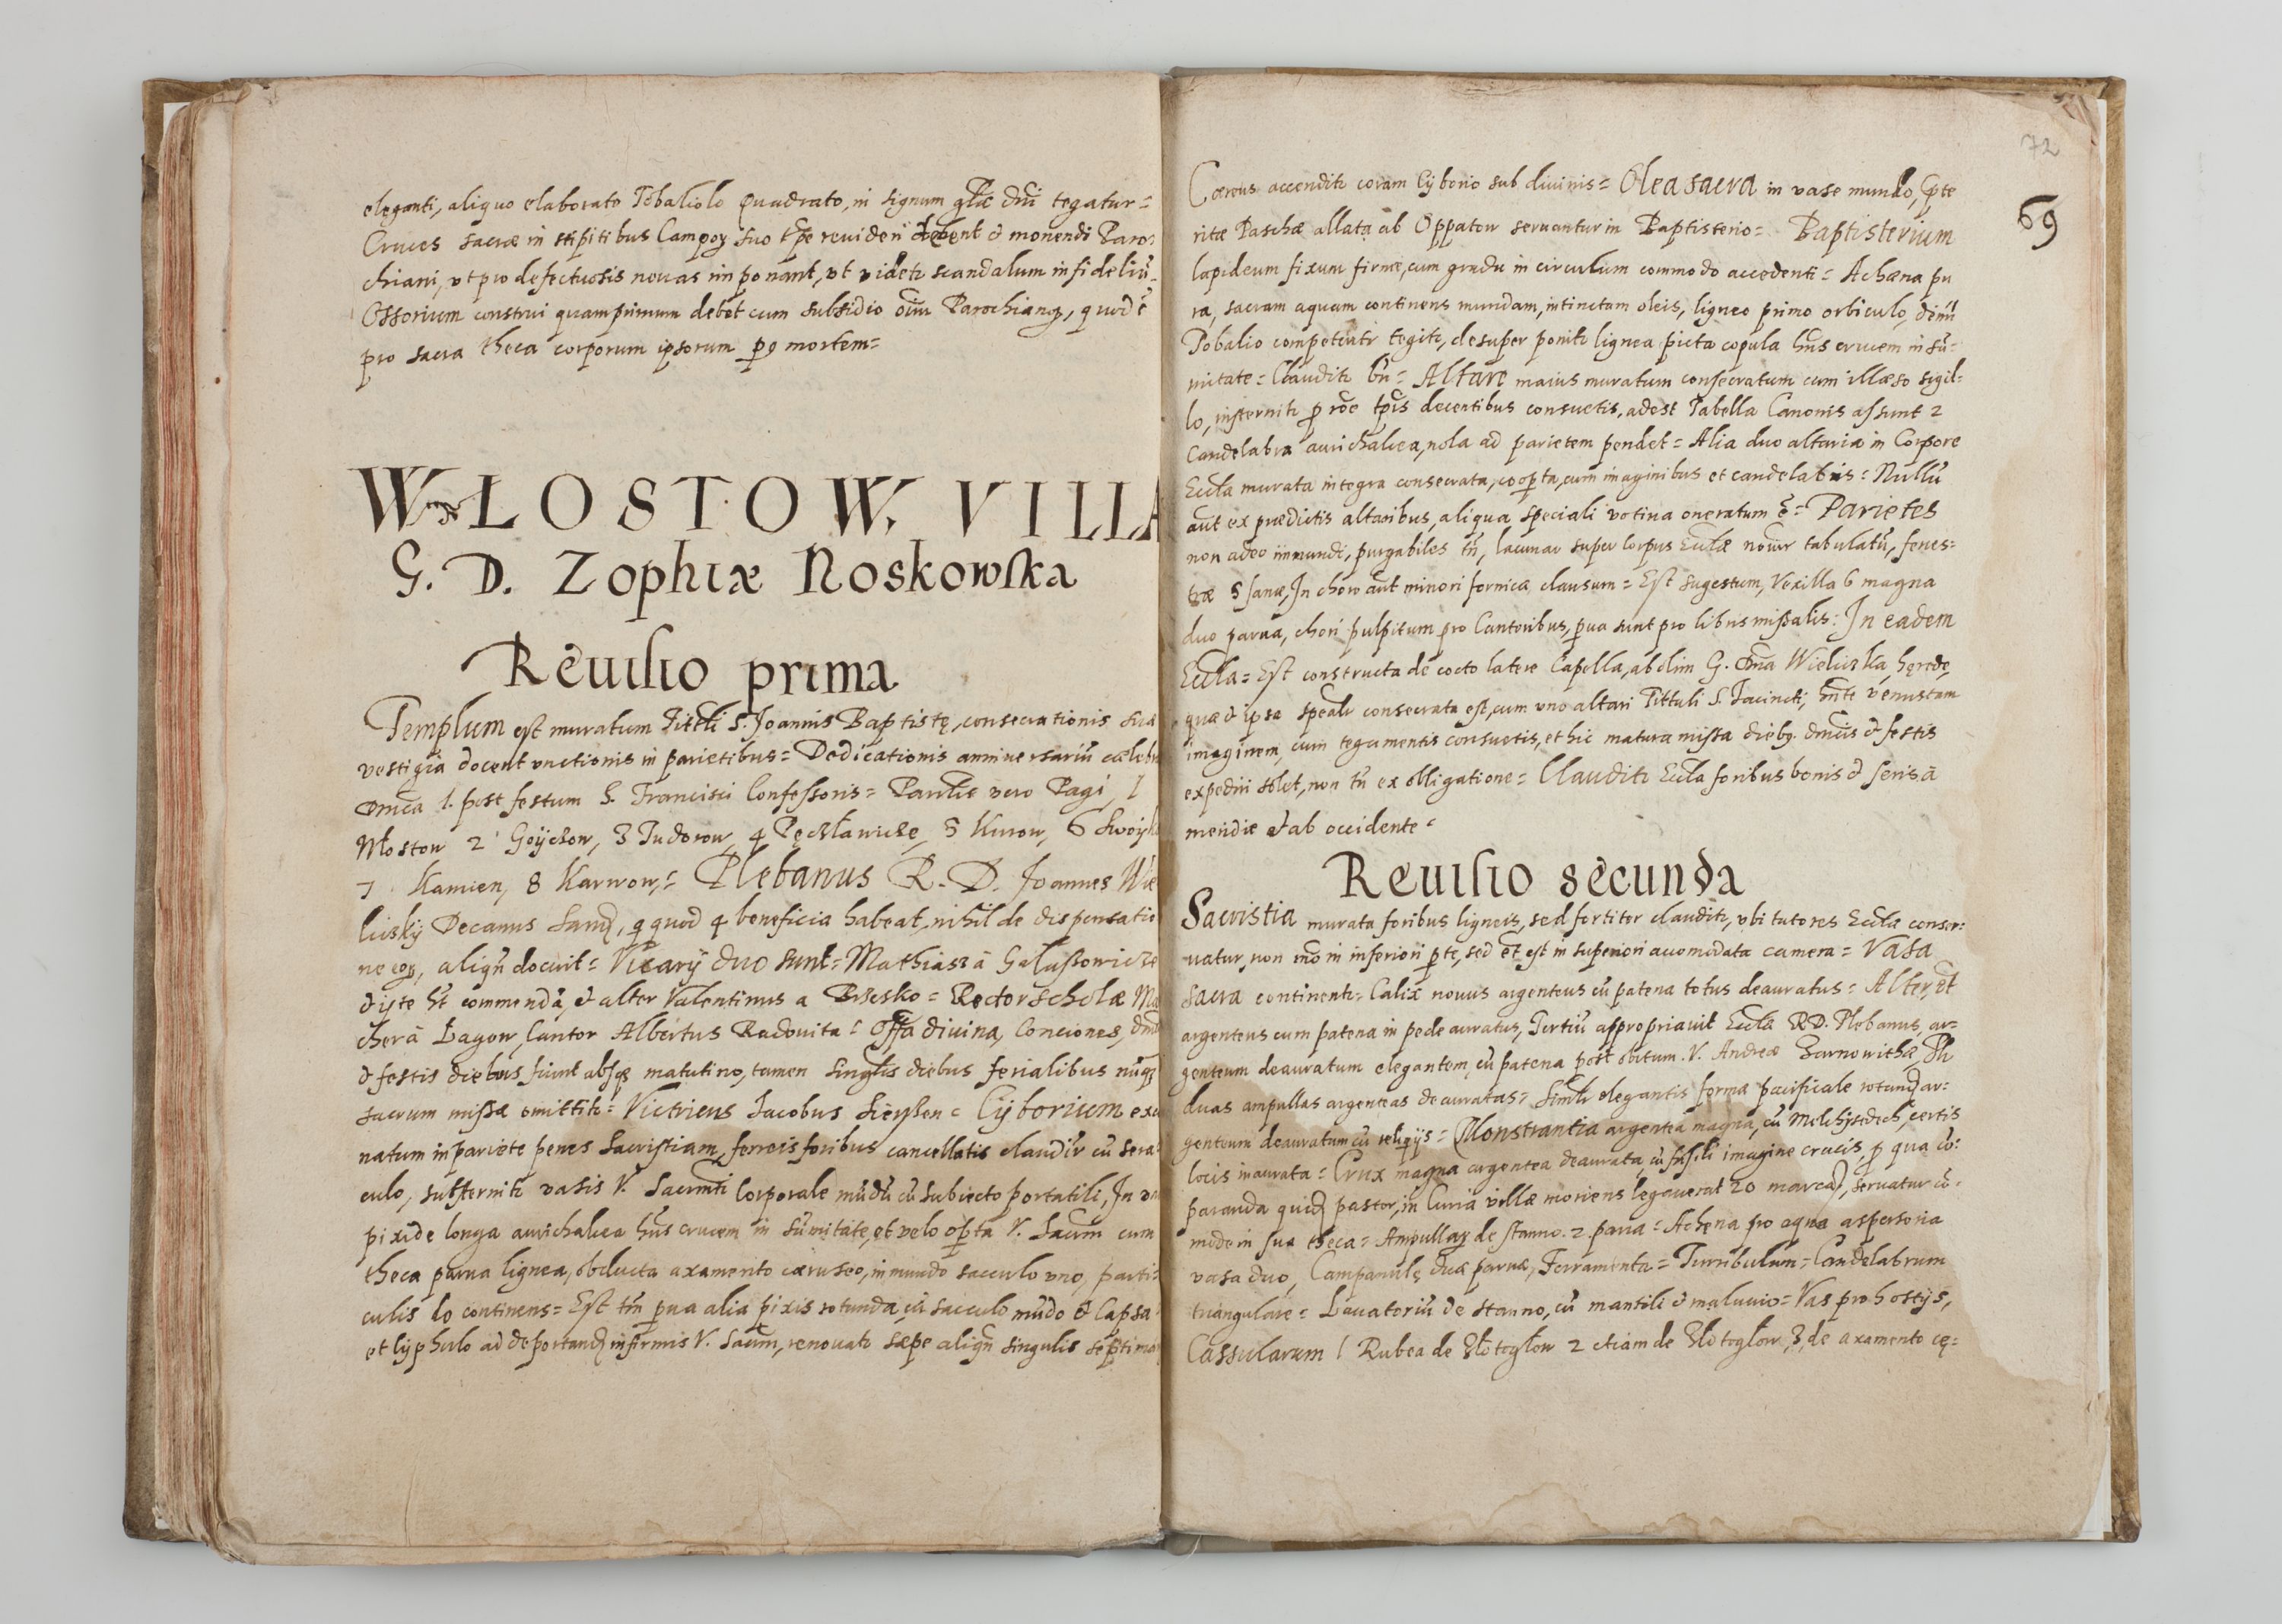 eleganti, aliquo elaborato Tobaliolo quadrato, in signum glae dni tegatur =
Cruces sacrae in stipitibus Campoꝝ suo tpe revideri debent & monendi Paro-
chiani, vt pro defectuosis novas imponant, vt videtr scandalum infideliũ.
Ossorium construi quamprimum debet cum subsidio oĩu Parochianoꝝ, quod ẽ
pro sacra theca corporum ipsorum p9 mortem =
WLOSTOW. VILLA
G. D. Zophiæ Noskowska
Revisio prima
Templum est muratum Tituli S. Joannis Baptistę, consecrationis suae
vestigia docent vnctionis in parietibus = Dedicationis anniversariũ
Dnica 1. post festum S. Francisci Confessoris = vero Pagi, 1
Włostow 2 Goÿczow, 3 Tudorow, 4 Pęczławicze, 5 Kurow, 6
7 Kamien, 8 Karwow, = Plebanus R. D. Joannes Wie
liczkÿ Decanus quod 4 beneficia habeat, nihil de dispensatio
ne eoꝝ, docuit = Vicarÿ duo sunt = Mathiasz â
& iste commendã, & alter Valentinus a Brzesko = Rector scholæ Ma
cher â Lagow, Cantor Albertus Radovita = Offa divina, Conciones,
& festis diebus fiunt absqꝫ matutino, tamen singlis diebus ferialibus nũqꝫ
sacrum missæ omittitr = Victricus Jacobus = Cÿborium
natum in pariete penes Sacristiam, ferreis foribus cancellatis clauditr cũ
culo, substernitr vasis V. Sacrmti Corporale mũdũ cũ subiecto portatili, In
pixide longa aurichalcea hñs crucem in sũmitate, et velo opta V. Sacrm cum
theca parva lignea, obducta axamento caeruleo, in mundo sacculo uno, parti-
culis 10 continens = Est tñ pua alia pixis rotunda, cũ sacculo mũdo & Capsa
et cÿphulo ad deportand infirmis V. Sacrm, renovatr sæpe singulis septima
72
69
Cæreus accenditr coram Cÿborio sub divinis = Olea sacra in vase mundo,
ritæ Paschæ allata ab Oppatow servantur in Baptisterio = Baptisterium
lapideum fixum firmæ, cum gradu in circulum commodo accedenti = Achæna pu
ra, sacram aquam continens mundam, intinctam oleis, ligneo primo orbiculo,
Tobalio competentr tegitr, desuper ponitr lignea picta copula hñs crucem in sũ-
mitate = Clauditr bñ = Altare maius muratum consecratum cum illæso sigil-
lo, insternitr p tpis decentibus consuetis, adest Tabella Canonis assunt 2
Candelabra aurichalcea, nola ad parietem pendet = Alia duo altaria in Corpore
Eccla murata integra consecrata, coopta, cum imaginibus et candelabris = Nullũ
aut ex prædictis altaribus, aliqua speciali votina oneratum ẽ = Parietes
non adeo immundi, purgabiles tñ, lacunar super Corpus Ecclæ tabulatũ, fenes-
træ 5 sanæ, In choro aut minori fornicæ clausum = Est sugestum, Vexilla 6 magna
duo parva, chori pulpitum pro Cantoribus, pua sunt pro libris missalis: In eadem
Eccla = Est constructa de cocto latere Capella, ab olim G. Dna Wieliczka, hęredę,
quæ & ipsa spealr consecrata est, cum uno altari Tittuli S. Jacincti, venustam
imaginem, cum tegumentis consuetis, et hic matura missa dieb9. dnicis & festis
expediri solet, non tñ ex obligatione = Clauditr Eccla foribus bonis & seris ã
meridie & ab occidente =
Revisio secunda
Sacristia murata foribus ligneis, sed fortiter clauditr, vbi tutores Eccla conser-
vatur, non in inferiori pte, sed et est in superiori accomodata camera = Vasa
sacra continentr = Calix novus argenteus cũ patena totus deauratus = Alter, et
argenteus cum patena in pede auratus, Tertiũ appropriavit Eccla RD. Plebanus, ar-
genteum deauratum elegantem, cũ patena post obitum. V. Andreæ Et
duas ampullas argenteas deauratas = Similr elegantis formæ pacificale rotund ar-
genteum deauratum cũ reliqÿs = Monstrantia argentea magna, cũ Melchisedech, certis
locis inaurata = Crux magna argentea deaurata, cũ fusili imagine crucis, p qua cõ-
paranda pastor, in Curia villæ moriens legaverat 20 marcas, servatur cõ-
mode in sua theca = Ampullaꝝ de stanno. 2 paria = Achęna pro aqua aspersoria
vasa duo, Campanulę duæ parvæ, Ferramenta = Turribulum = Candelabrum
triangulare = Lavatoriũ de stanno, cũ mantili & maluvio = Vas pro hostÿs,
Cassularum 1 Rubea de Złotogłow 2 etiam de Złotogłow, 3, de axamento cę-